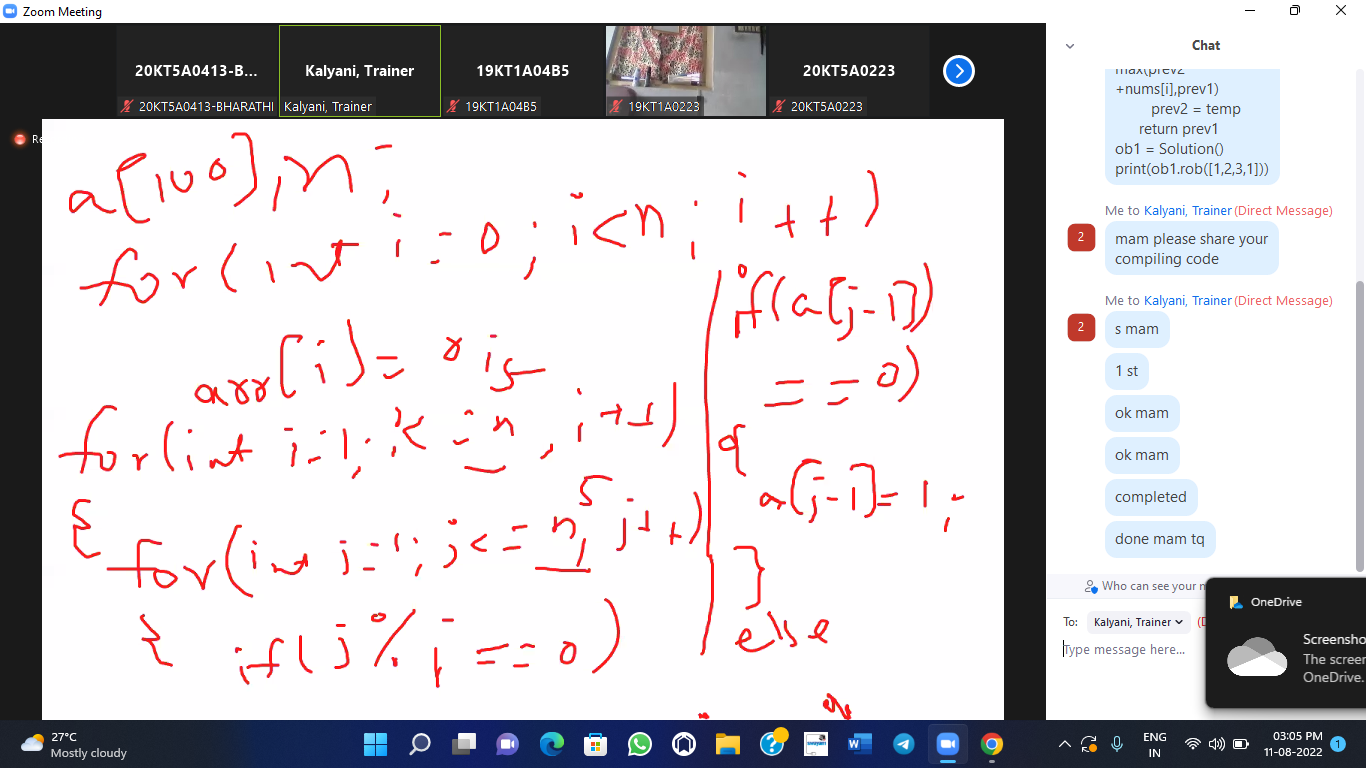 Zoom Meeting
20KT5A0413-B...
Kalyani, Trainer
19KT1A04B5
20KT5A0223
20KT5A0413-BHARATHI
Kalyani, Trainer
19KT1A04B5
19KT1A0223
20KT5A0223
Re
a[100],n;
for(int i=0;i<n;i++)
arr[i]=
for(int i=1;i<=n,i++)
{
for(int j=1;j<=n;j++)
{ if(j%i==0)
if(a[j-1])
==0)
{
a[j-1]=1;
}
else
Chat
max(prev2
+nums[i],prev1)
prev2 = temp
return prev1
ob1 = Solution()
print(ob1.rob([1,2,3,1]))
Me to Kalyani, Trainer (Direct Message)
2
mam please share your
compiling code
Me to Kalyani, Trainer (Direct Message)
2
s mam
1 st
ok mam
ok mam
completed
done mam tq
Who can see your
To: Kalyani, Trainer
Type message here...
OneDrive
Screensho
The screen
OneDrive.
27°C
Mostly cloudy
ENG
IN
03:05 PM
11-08-2022
1